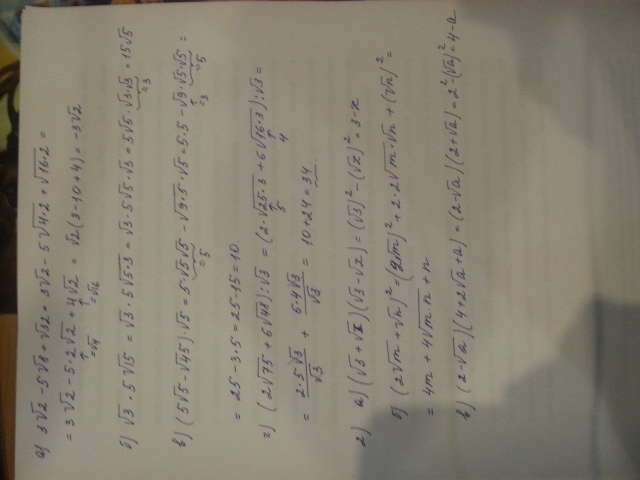 а) 3√2 - 5√8 + √32 = 3√2 - 5√4·2 + √16·2 =
= 3√2 - 5·2√2 + 4√2 = √2(3-10+4) = -3√2
=√4 =√16
б) √3 · 5√15 = √3 · 5√5·3 = √3·5√5·√3 = 5√5·√3·√3 = 15√5
=3
в) (5√5 - √45)·√5 = 5·√5·√5 - √9·5·√5 = 5·5 - √9·√5·√5 =
=5 =3 =5
= 25 - 3·5 = 25-15 = 10.
г) (2√75 + 6√48):√3 = (2·√25·3 + 6√16·3):√3 =
5 4
= 2·5√3/√3 + 6·4√3/√3 = 10+24 = 34
2) а) (√3+√x)(√3-√x) = (√3)² - (√x)² = 3-x
б) (2√m+√n)² = (2√m)² + 2·2√m·√n + (√n)² =
= 4m + 4√m n + n
в) (2-√a)(4+2√a+a) = (2-√a)(2+√a) = 2²-(√a)² = 4-a